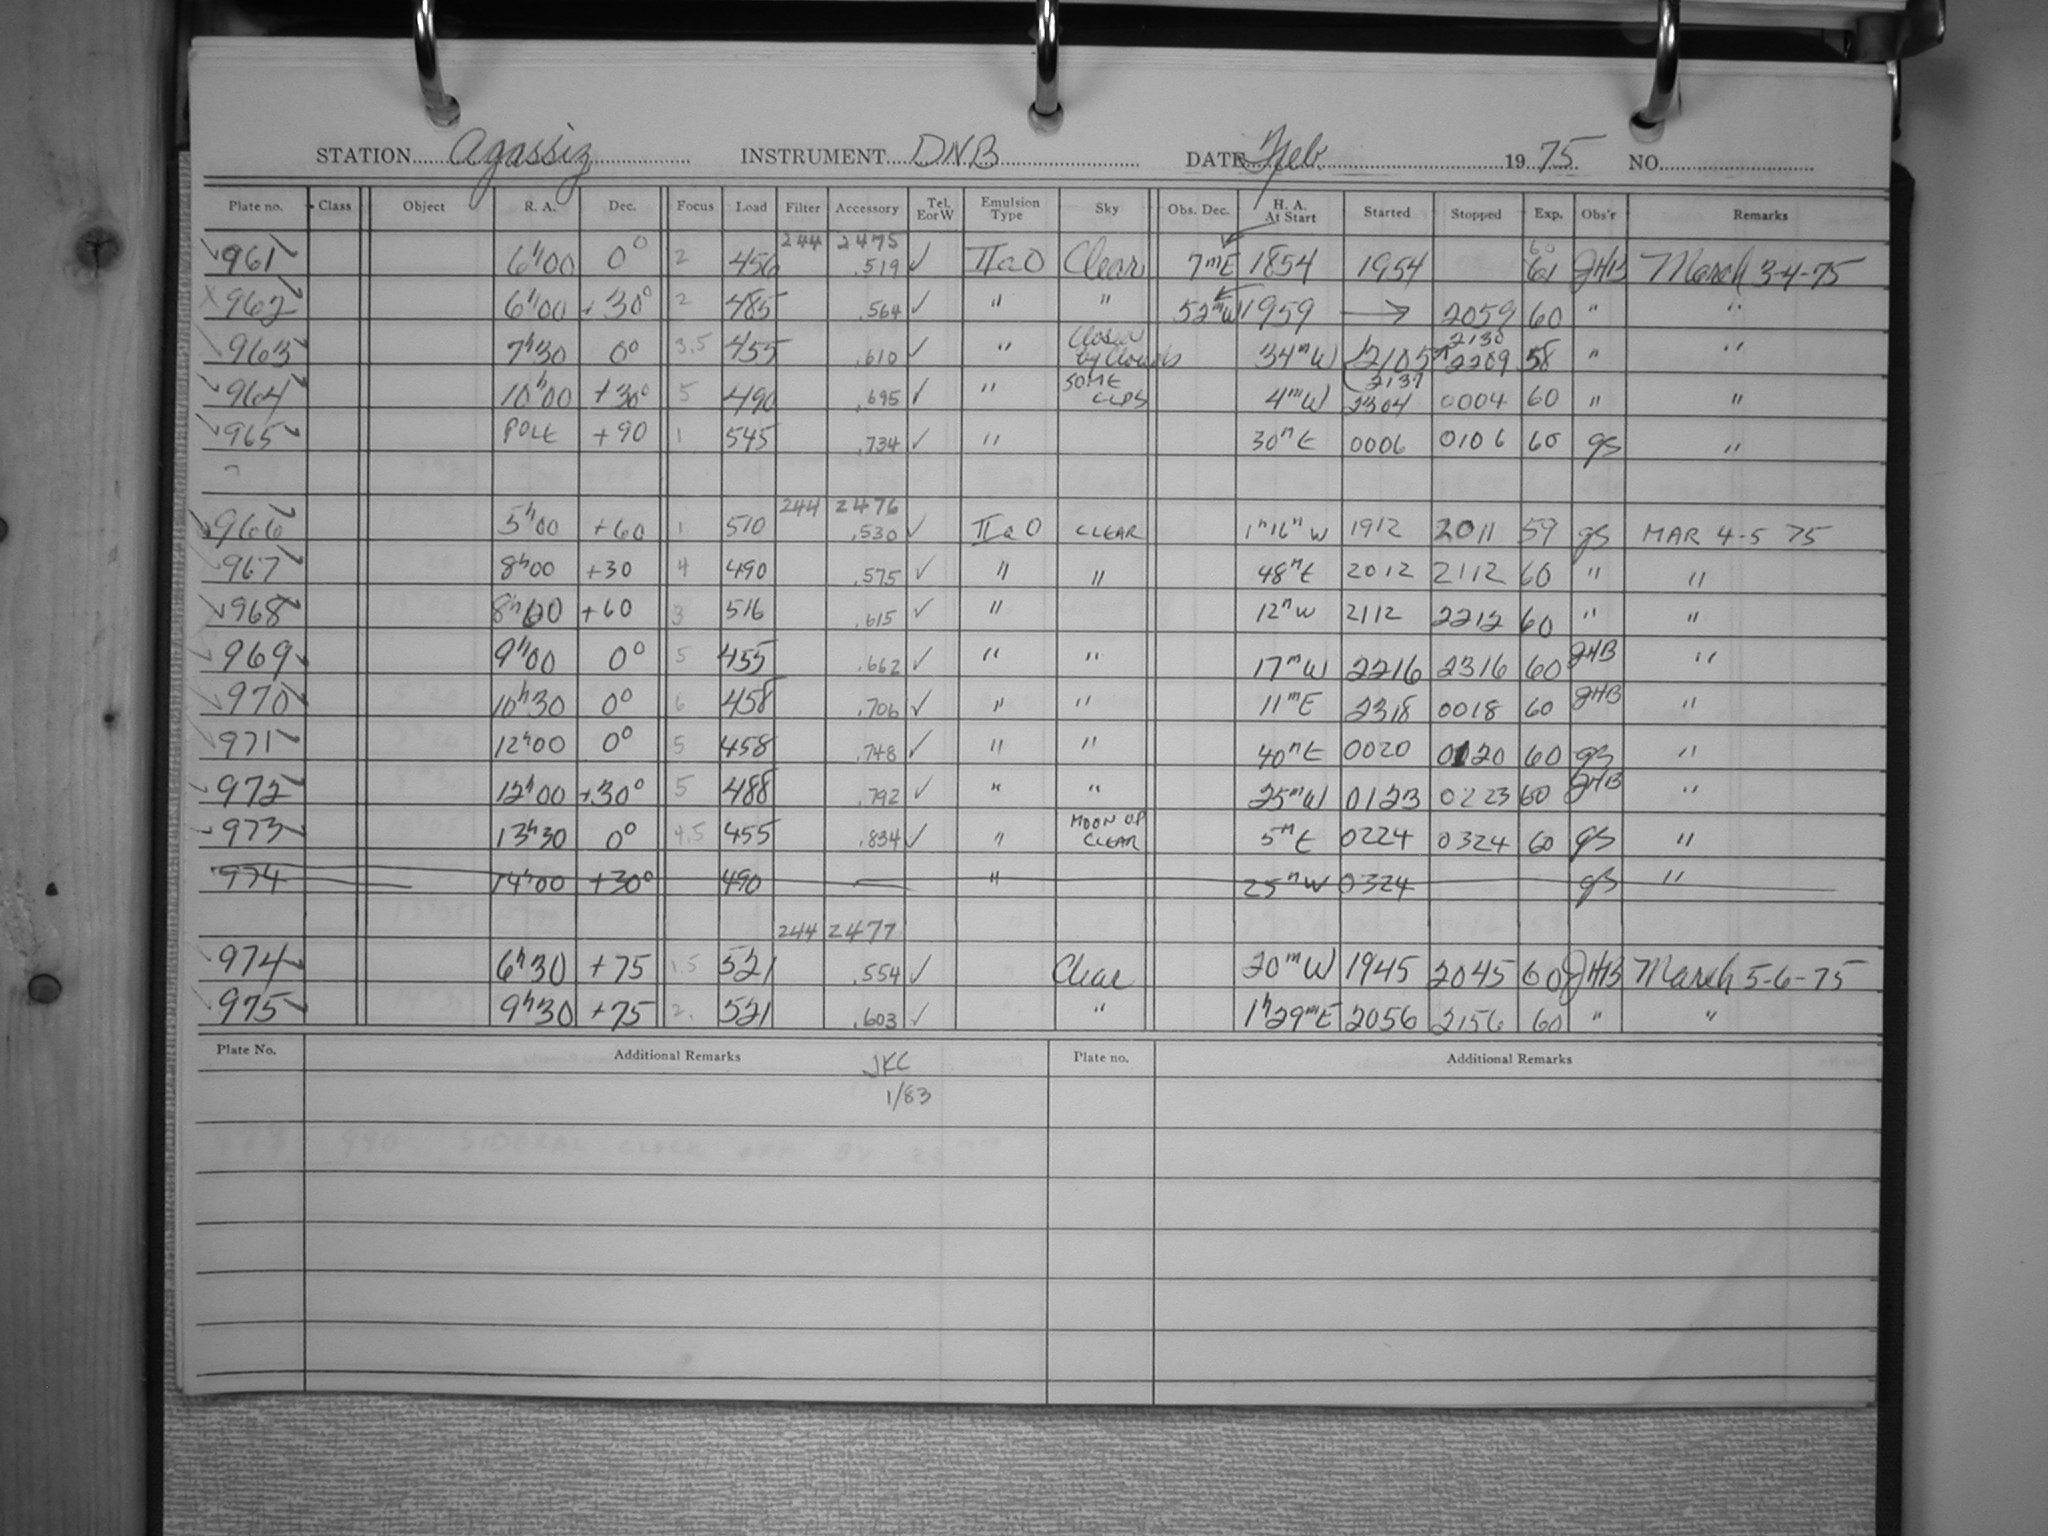 STATION Agassiz INSTRUMENT DNB DATE Feb 1975 NO.
Plate no. Class Object R. A. Dec. Focus Load Filter Accessory Tel. E or W Emulsion Type Sky Obs. Dec. H. A. At Start Started Stopped Exp. Obs'r Remarks
244 2475 60
✓961✓ 6h00 0° 2 456 .519 ✓ IIaO Clear 7mE 1854 1954 61 JHB March 3-4-75
x962✓ 6h00 +30° 2 485 .564 ✓ " " 52mW 1959 → 2059 60 " "
✓963✓ 7h30 0° 3.5 455 .610 ✓ " Closed by Clouds 34mW 2105 2130 2137 2209 58 " "
✓964✓ 10h00 +30° 5 490 .695 ✓ " SOME CLDS 4mW 2304 0004 60 " "
✓965✓ POLE +90 1 545 .734 ✓ " 30mE 0006 0106 60 gs "
244 2476
✓966✓ 5h00 +60 1 510 .530 ✓ IIaO CLEAR 1h16mW 1912 2011 59 gs MAR 4-5 75
✓967✓ 8h00 +30 4 490 .575 ✓ " " 48mE 2012 2112 60 " "
✓968✓ 8h00 +60 3 516 .615 ✓ " 12mW 2112 2212 60 " "
✓969✓ 9h00 0° 5 455 .662 ✓ " " 17mW 2216 2316 60 JHB "
✓970✓ 10h30 0° 6 458 .706 ✓ " " 11mE 2318 0018 60 JHB "
✓971✓ 12h00 0° 5 458 .748 ✓ " " 40mE 0020 0120 60 gs "
✓972✓ 12h00 +30° 5 488 .792 ✓ " " 25mW 0123 0223 60 JHB "
✓973✓ 13h30 0° 4.5 455 .834 ✓ " MOON UP CLEAR 5mE 0224 0324 60 gs "
974 14h00 +30° 490 " 25mW 0324 gs "
244 2477
✓974✓ 6h30 +75 1.5 521 .554 ✓ Clear 20mW 1945 2045 60 JHB March 5-6-75
✓975✓ 9h30 +75 2. 521 .603 ✓ " 1h29mE 2056 2156 60 " "
Plate No. Additional Remarks Plate no. Additional Remarks
JKC
1/83